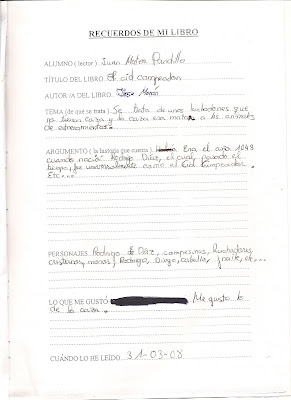 RECUERDOS DE MI LIBRO
ALUMNO ( lector ) Juan Mateo Pardillo
TÍTULO DEL LIBRO: El cid campeador
AUTOR /A DEL LIBRO: Jose Morán
TEMA (de que se trata ) Se trata de unos luchadores que
no tienen caza y la caza era matar a los animales
de
ARGUMENTO ( la historia que cuenta ) Era el año 1048
cuando nació Rodrigo Díaz, el cual, pasado el
tiempo, fue como el Cid Campeador.
Etc....
PERSONAJES Rodrigo de Díaz, campesinos, luchadores
cristianos, moros, Rodrigo, Diego, caballo, etc...
LO QUE ME GUSTÓ Me gustó lo
de la caza.
CUÁNDO LO HE LEÍDO 31-03-08